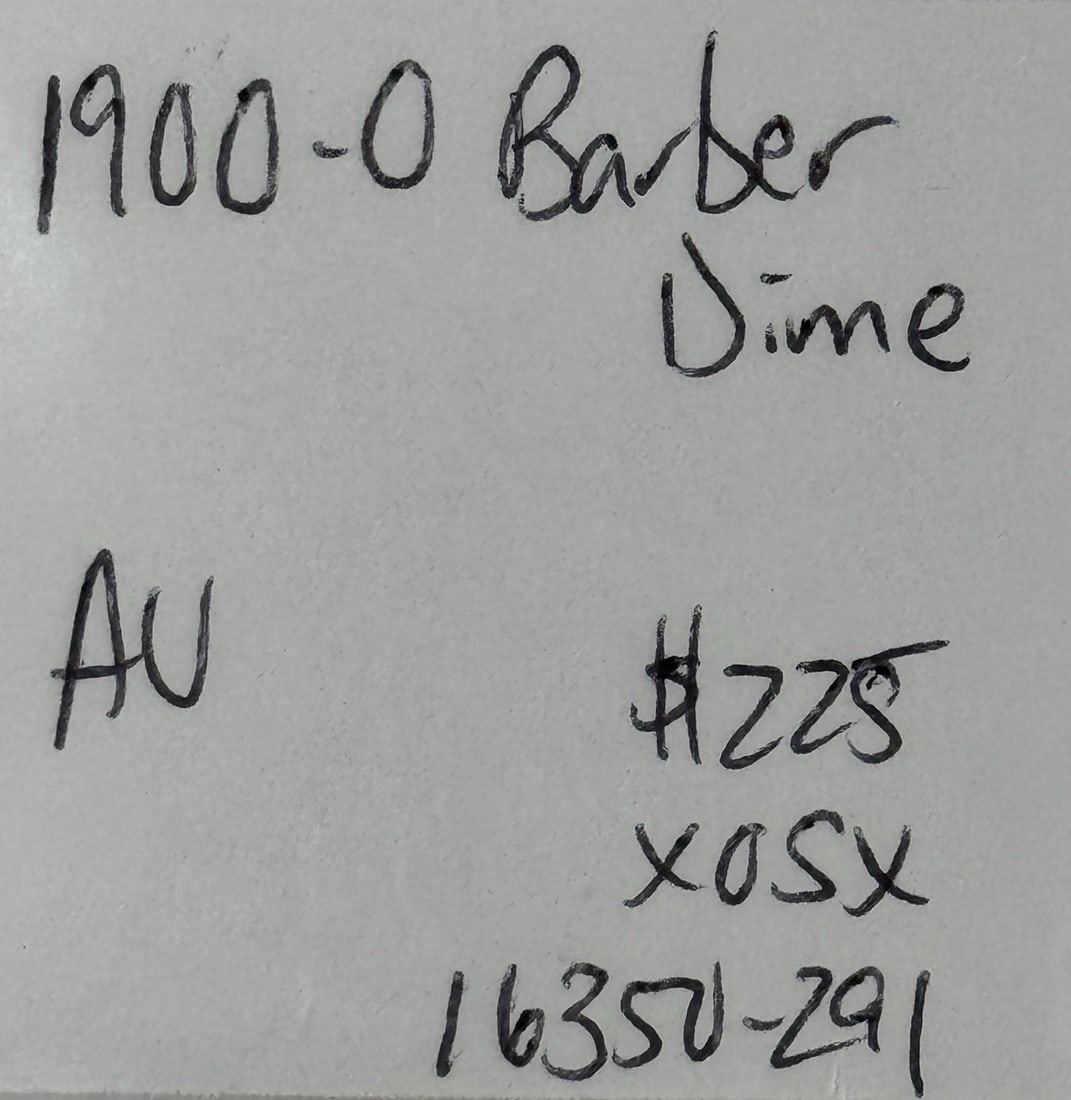 1900-O Barber
Dime
AU
$225
XOSX
16350-291